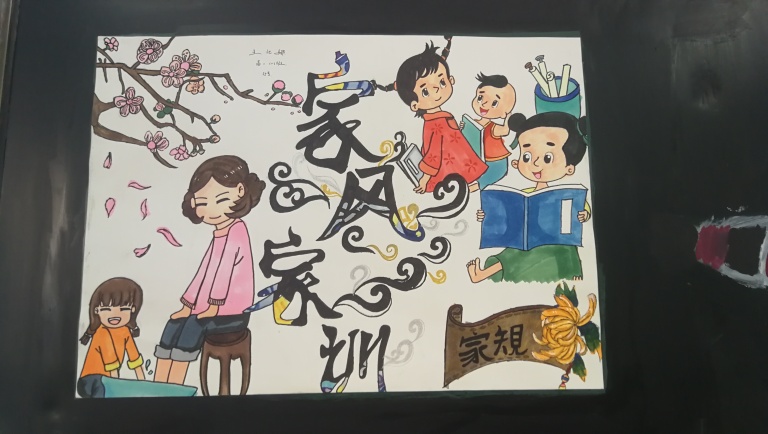 家风
家训
家規